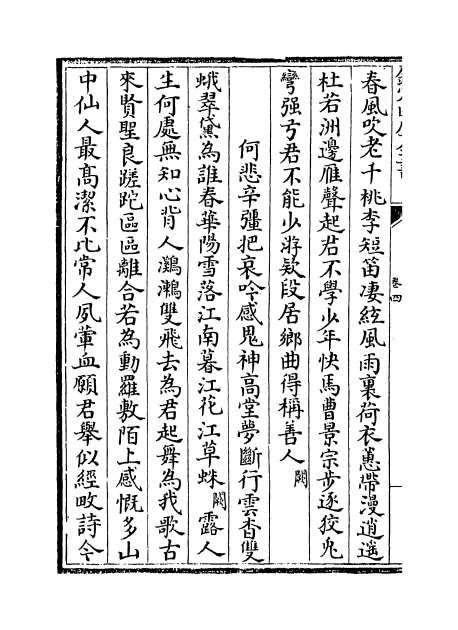 卷四
春風吹老千桃李短笛凄絃風雨裏荷衣蕙帶漫逍遥
杜若洲邊雁聲起君不學少年快馬曹景宗步逐狡兎
彎强弓君不能少游欵段居鄉曲得稱善人闕
何悲辛彊把哀吟感鬼神高堂夢斷行雲杳雙
蛾翠黛為誰春華陽雪落江南暮江花江草蛛闕露人
生何處無知心背人鸂鶒雙飛去為君起舞為我歌古
來賢聖良蹉跎區區離合若為動羅敷陌上感慨多山
中仙人最高潔不比常人夙葷血願君舉似經畋詩今